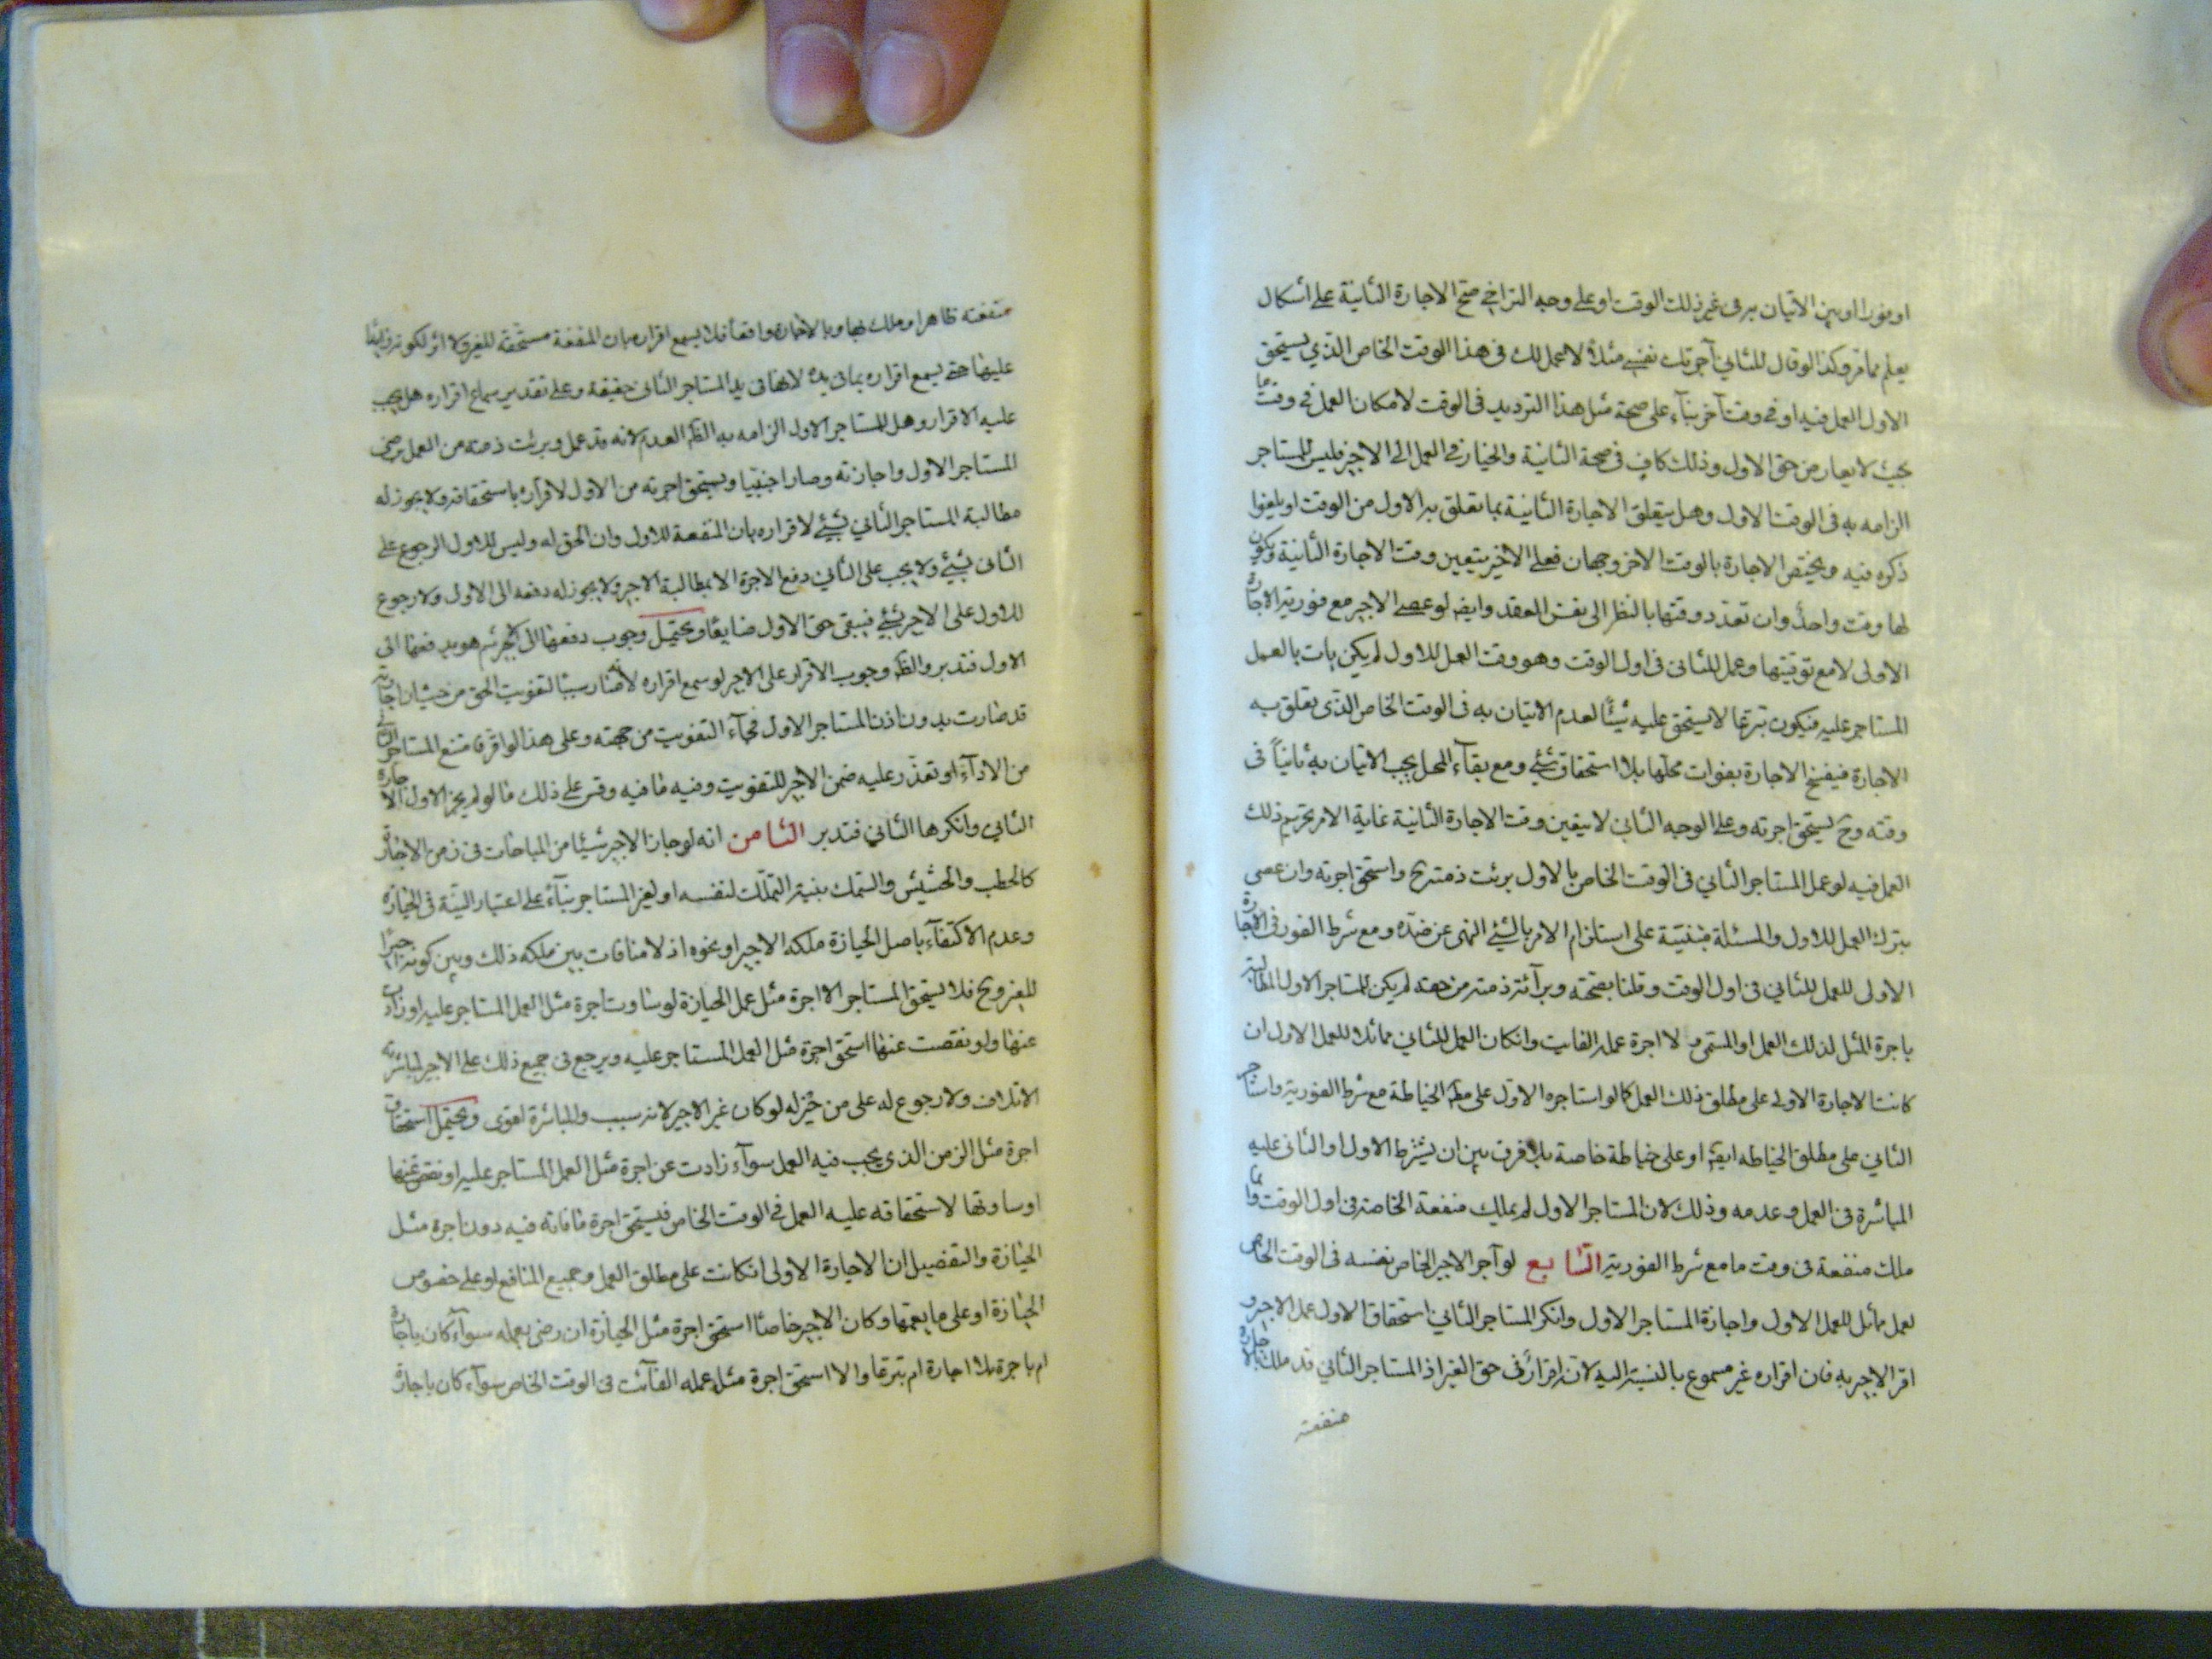 او فورا او بين الاتيان به في غير ذلك الوقت او على وجه التراخي صح الاجارة الثانية على اشكال
يعلم مما مر وكذا لو قال للثاني آجرتك نفسي مثلا لاعمل لك في هذا الوقت الخاص الذي يستحق
الاول العمل فيه او في وقت آخر بناء على صحة مثل هذا الترديد في الوقت لامكان العمل في وقت ما
بحيث لا يعارض حق الاول وذلك كاف في صحة الثانية والخيار في العمل الى الاجير فليس للمستاجر
الزامه به في الوقت الاول وهل يتعلق الاجارة الثانية بما تعلق به الاول من الوقت او يلغوا
ذكره فيه ويختص الاجارة بالوقت الاخر وجهان فعلى الاخير يتعين وقت الاجارة الثانية ويكون
لها وقت واحد وان تعدد وقتها بالنظر الى نفس العقد وايضا لو عصى الاجير مع فورية الاجارة
الاولى لا مع توقيتها وعمل للثاني في اول الوقت وهو وقت العمل للاول لم يكن يات بالعمل
المستاجر عليه فيكون تبرعا لا يستحق عليه شيئا لعدم الاتيان به في الوقت الخاص الذي تعلق به
الاجارة فيفسخ الاجارة بفوات محلها بلا استحقاق شئ ومع بقاء المحل يجب الاتيان به ثانيا في
وقته وح يستحق اجرته وعلى الوجه الثاني لا يتعين وقت الاجارة الثانية غاية الامر تحريم ذلك
العمل فيه لو عمل المستاجر الثاني في الوقت الخاص بالاول برئت ذمته ح واستحق اجرته وان عصى
بترك العمل للاول والمسئلة مبتنية على استلزام الامر بالشئ النهى عن ضده ومع شرط الفور في الاجارة
الاولى للعمل للثاني في اول الوقت وقلنا بصحته وبرآئة ذمته من جهته لم يكن للمستاجر الاول المطالبة
باجرة المثل لذلك العمل او المسمى بل لا اجرة عمله الفايت وانكان العمل للثاني مماثلا للعمل الاول ان
كانت الاجارة الاولى على مطلق ذلك العمل كما لو استاجره الاول على مطلق الخياطة مع شرط الفورية واستاجر
الثاني على مطلق الخياطه ايضا او على خياطة خاصة بلا فرق بين ان يشترط الاول او الثاني عليه
المباشرة في العمل وعدمه وذلك لان المستاجر الاول لم يملك منفعة الخاصة في اول الوقت وانما
ملك منفعة في وقت ما مع شرط الفورية السابع لو آجر الاجير الخاص نفسه في الوقت الخاص
لعمل مماثل للعمل الاول واجازة المستاجر الاول وانكر المستاجر الثاني استحقاق الاول عمل الاجير و
اقر الاجير به فان اقراره غير مسموع بالنسبة اليه لانه اقرار في حق الغير اذ المستاجر الثاني قد ملك بالاجارة
منفعته
منفعته ظاهرا وملك بها وبالاجارة واقعا فلا يسمع اقراره بان المنفعة مستحقة للغير ولا اثر لكونه
عليها حتى يسمع اقراره بما في يده لانها في يد المستاجر الثاني حقيقة وعلى تقدير سماع اقراره هل يجب
عليه الاقرار وهل للمستاجر الاول الزامه به الظ العدم لانه قد عمل وبرئت ذمته من العمل برضى
المستاجر الاول واجازته وصار اجنبيا ويستحق اجرته من الاول لاقراره باستحقاقه ولا يجوز له
مطالبة المستاجر الثاني بشئ لاقراره بان المنفعة للاول وان الحق له وليس للاول الرجوع على
الثاني بشئ ولا يجب على الثاني دفع الاجرة الا بمطالبة الاجير ولا يجوز له دفعه الى الاول ولا رجوع
للاول على الاجير بشئ فيبقى حق الاول ضايعا ويحتمل وجوب دفعها الى الاجير ثم هو يدفعها الى
الاول فتدبر والظ وجوب الاقرار على الاجير لو سمع اقراره لانه صار سببا لتفويت الحق من حيث ان اجارته
قد صارت بدون اذن المستاجر الاول فجاء التفويت من جهته وعلى هذا لو اقر فامتنع المستاجر الثاني
من الاداء او تعذر عليه ضمن الاجير للتفويت وفيه ما فيه وقس على ذلك ما لو لم يجز الاول الاجارة
الثاني وانكرها الثاني فتدبر الثامن انه لو حاز الاجير شيئا من المباحات في زمن الاجارة
كالحطب والحشيش والسمك بنية التملك لنفسه او لغير المستاجر بناء على اعتبار النية في الحيازة
وعدم الاكتفاء باصل الحيازة ملكه الاجير او نحوه اذ لا منافات بين ملكه ذلك وبين كونه اجيرا
للغير وح فلا يستحق المستاجر الا اجرة مثل عمل الحيازة لو ساوت اجرة مثل العمل المستاجر عليه او زادت
عنها ولو نقصت عنها استحق اجرة مثل العمل المستاجر عليه ويرجع في جميع ذلك على الاجير لمباشرته
الاتلاف ولا رجوع له على من حيز له لو كان غير الاجير لانه سبب والمباشرة اقوى ويحتمل استحقاق
اجرة مثل الزمن الذي يجب فيه العمل سواء زادت عن اجرة مثل العمل المستاجر عليه او نقص عنها
او ساوتها لاستحقاقه عليه العمل في الوقت الخاص فيستحق اجرة ما فاته فيه دون اجرة مثل
الحيازة والتفصيل ان الاجارة الاولى انكانت على مطلق العمل وجميع المنافع او على خصوص
الحيازة او على ما يعمها وكان الاجير خاصا استحق اجرة مثل الحيازة ان رضى بعمله سواء كان باجارة
ام باجرة بلا اجارة ام تبرعا والا استحق اجرة مثل عمله الفائت في الوقت الخاص سواء كان باجارة